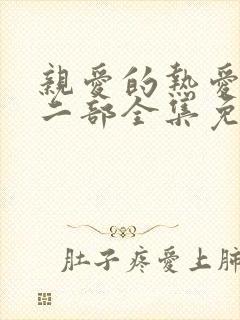 親愛的熱愛
二部全集免
肚子疼愛上肺